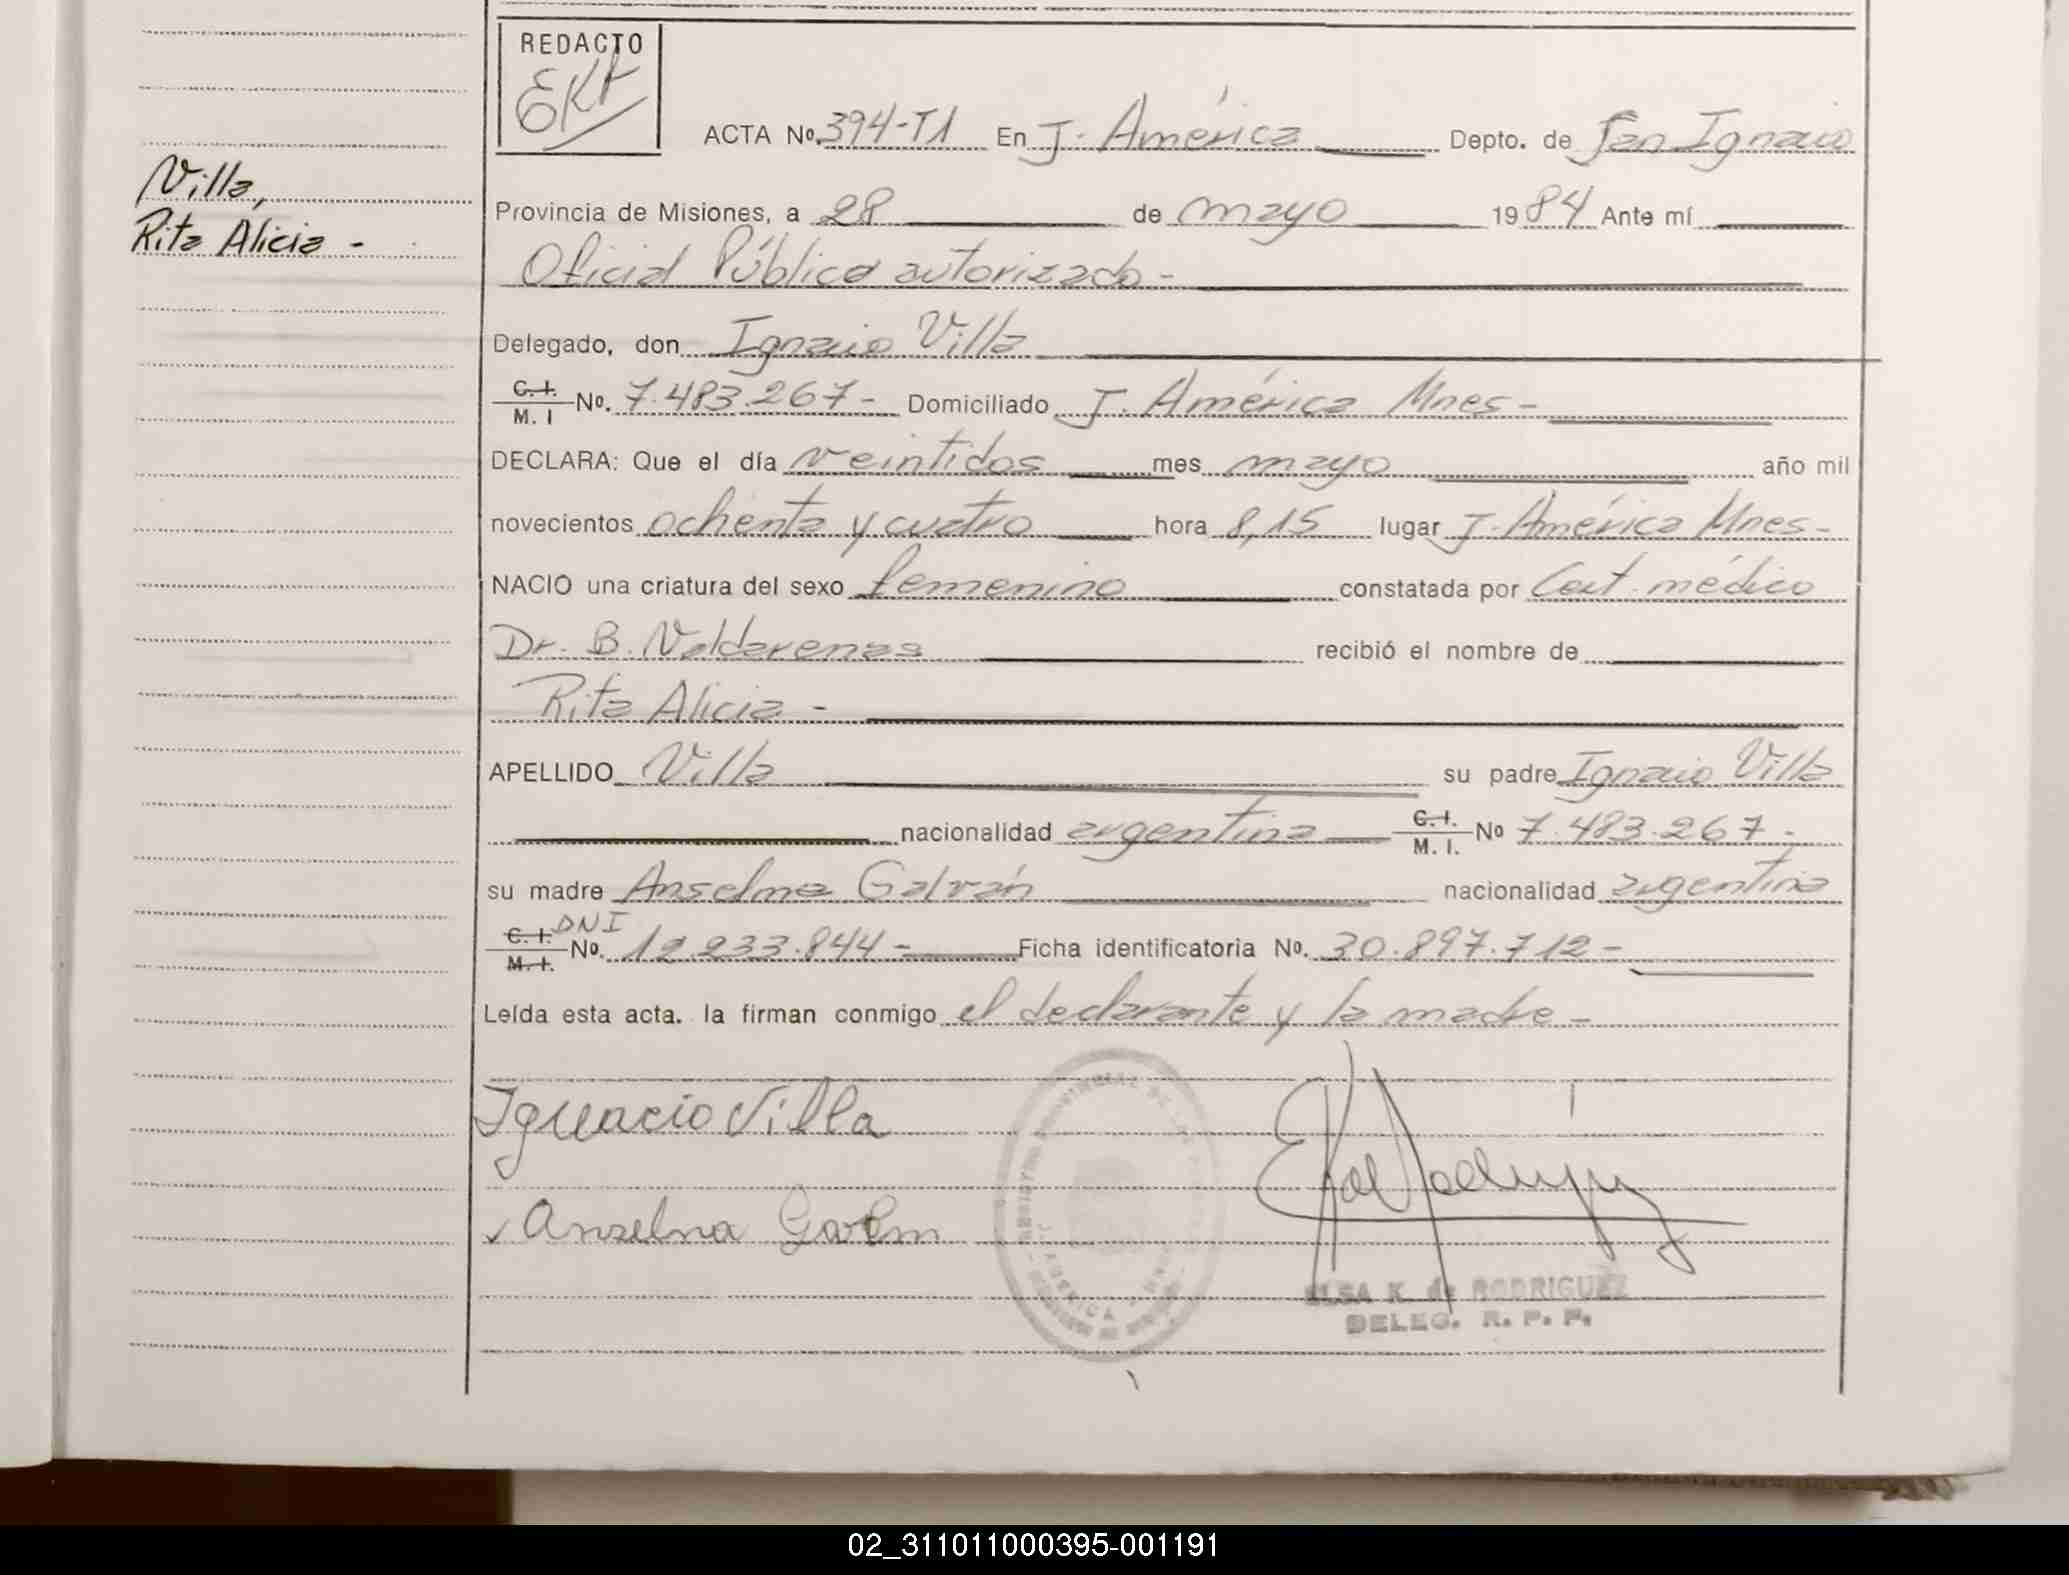 REDACTO
EKR
ACTA Nº. 394-T1 En J. América Depto. de San Ignacio
Villa,
Rita Alicia -
Provincia de Misiones, a 28 de mayo 1984 Ante mí
Oficial Público autorizado -
Delegado, don Ignacio Villa
C.I. M. I Nº. 7.483.267 - Domiciliado J. América Mnes -
DECLARA: Que el día veintidos mes mayo año mil
novecientos ochenta y cuatro hora 8,15 lugar J. América Mnes -
NACIO una criatura del sexo femenino constatada por Cert. médico
Dr. B. Valdarenas recibió el nombre de
Rita Alicia -
APELLIDO Villa su padre Ignacio Villa
nacionalidad argentina C.I. M. I. Nº 7.483.267 -
su madre Anselma Galván nacionalidad argentina
C. I. M. I. DNI Nº. 12.233.844 - Ficha identificatoria Nº. 30.897.712 -
Leída esta acta. la firman conmigo el declarante y la madre -
Ignacio Villa
Anselma
AMERICA
ELSA K. de RODRIGUEZ
DELEG. R. P. P.
02_311011000395-001191